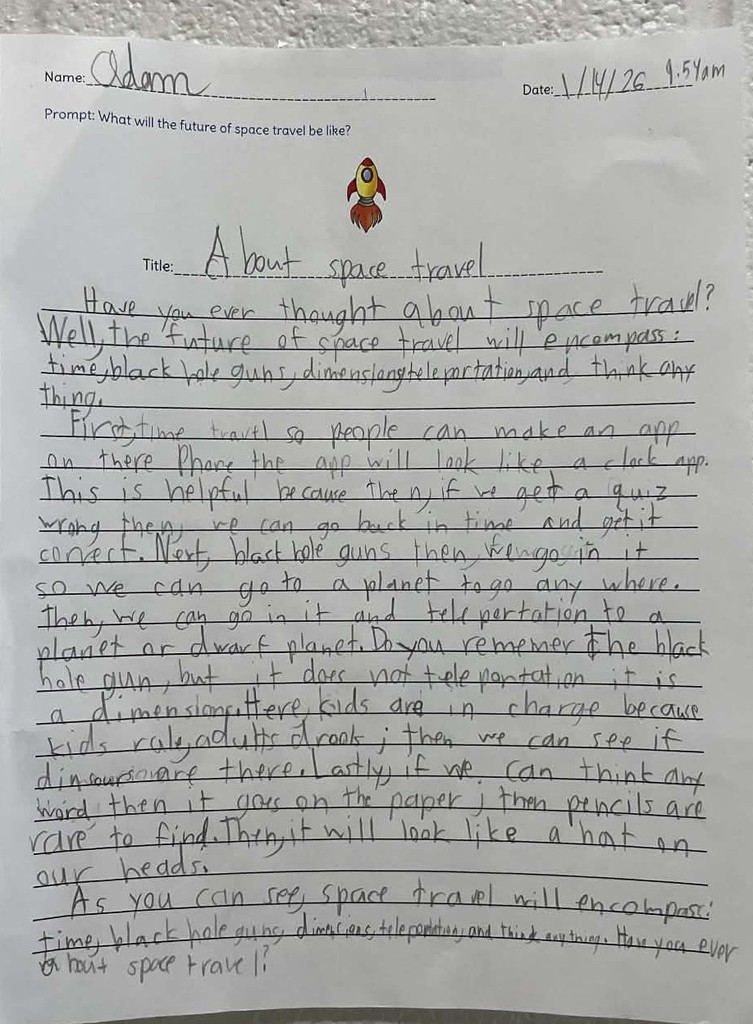 Name: Adam
Date: 1/14/26 9:54am
Prompt: What will the future of space travel be like?
Title: About space travel
Have you ever thought about space travel?
Well, the future of space travel will encompass:
time, black hole guns, dimensions, teleportation, and think any
thing.
First, time travel so people can make an app
on there Phone the app will look like a clock app.
This is helpful because then, if we get a quiz
wrong then, we can go back in time and get it
correct. Next, black hole guns then, we go in it
so we can go to a planet to go any where.
Then, we can go in it and teleportation to a
planet or dwarf planet. Do you rememer the black
hole gun, but it does not teleportation it is
a dimension. Here, kids are in charge because
kids rule, adults drool; then we can see if
are there. Lastly, if we can think any
word then it goes on the paper; then pencils are
rare to find. Then, it will look like a hat on
our heads.
As you can see, space travel will encompass:
time, black hole guns, dimensions, teleportation, and think anything. Have you ever
about space travel?